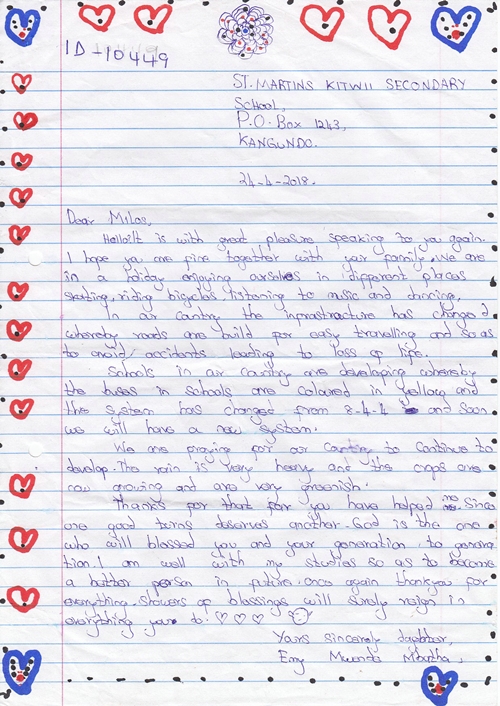 ID-10449
ST. MARTINS KITWII SECONDARY
School,
P.O. Box 1243,
KANGUNDO.
24-4-2018.
Dear Milos,
Hello! It is with great pleasure speaking to you again.
I hope you are fine together with your family. We are
in a holiday enjoying ourselves in different places
skating, riding bicycles, listening to music and dancing.
In our Country the infrastracture has changed
whereby roads are build for easy travelling and so as
to avoid accidents leading to loss of life.
Schools in our Country are developing whereby
the buses in schools are coloured in yellow and
the system has changed from 8-4-4 and soon
we will have a new system.
We are praying for our Country to Continue to
develop. The rain is very heavy and the crops are
now growing and are very greenish.
Thanks for that far you have helped me. Since
one good turns deserves another. God is the one
who will blessed you and your generation to genera
tion. I am well with my studies so as to become
a better person in future. once again thankyou for
everything. Showers of blessings will surely reign in
everything you do!
Yours sincerely daughter,
Emy Mwende